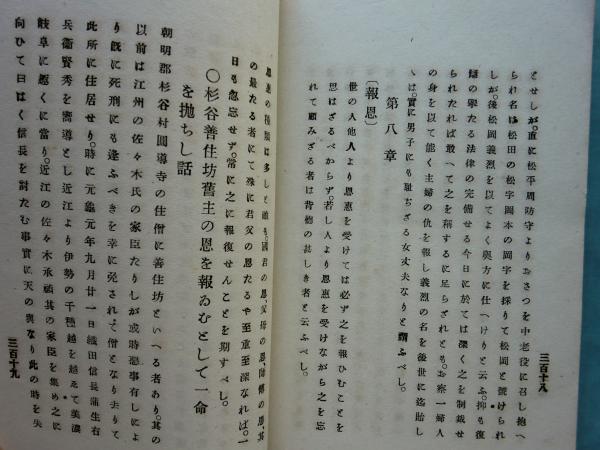 とせしが、直に松平周防守よりおさつを中老役に召し抱へ
られ名は松田の松字岡本の岡字を採りて松岡と號けられ
しが、後松岡義烈を以てよく奥方に仕へけりと云ふ。抑も復
讎の擧たる法律の完備せる今日に於ては深く之を制裁せ
られたれば敢へて之を稱するに足らざれとも、お察一婦人
の身を以て能く主婦の仇を報し義烈の名を後世に迄貽し
ゝは、實に男子にも耻ちざる女丈夫なりと謂ふべし。
第八章
〔報恩〕
世の人他人より恩惠を受けては必ず之を報ひむことを
思はざるべからず。若し人より恩惠を受けながら之を忘
れて顧みざる者は背徳の甚しき者と云ふべし。
三百十八
恩惠の種類は多しと雖も、國君の恩、父母の恩、師傅の恩、其
の最たる者にて殊に君父の恩たるや至重至深なれば、一
日も忽忘せず、常に之に報復せんことを期すべし。
〇杉谷善住坊舊主の恩を報ゐむとして一命
を抛ちし話
朝明郡杉谷村圓導寺の住僧に善住坊といへる者あり。其の
以前は江州の佐々木氏の家臣たりしが或時惡事有しによ
り既に死刑にも逢ふべきを幸に免されて、僧となり去りて
此所に住居せり。時に元龜元年九月廿一日織田信長蒲生右
兵衛賢秀を嚮導とし近江より伊勢の千種越を越ゑて美濃
岐阜に趣くに當り。近江の佐々木承禎其の家臣を集め之に
向ひて曰はく信長を討たむ事實に天の與なり此の時を失
三百十九